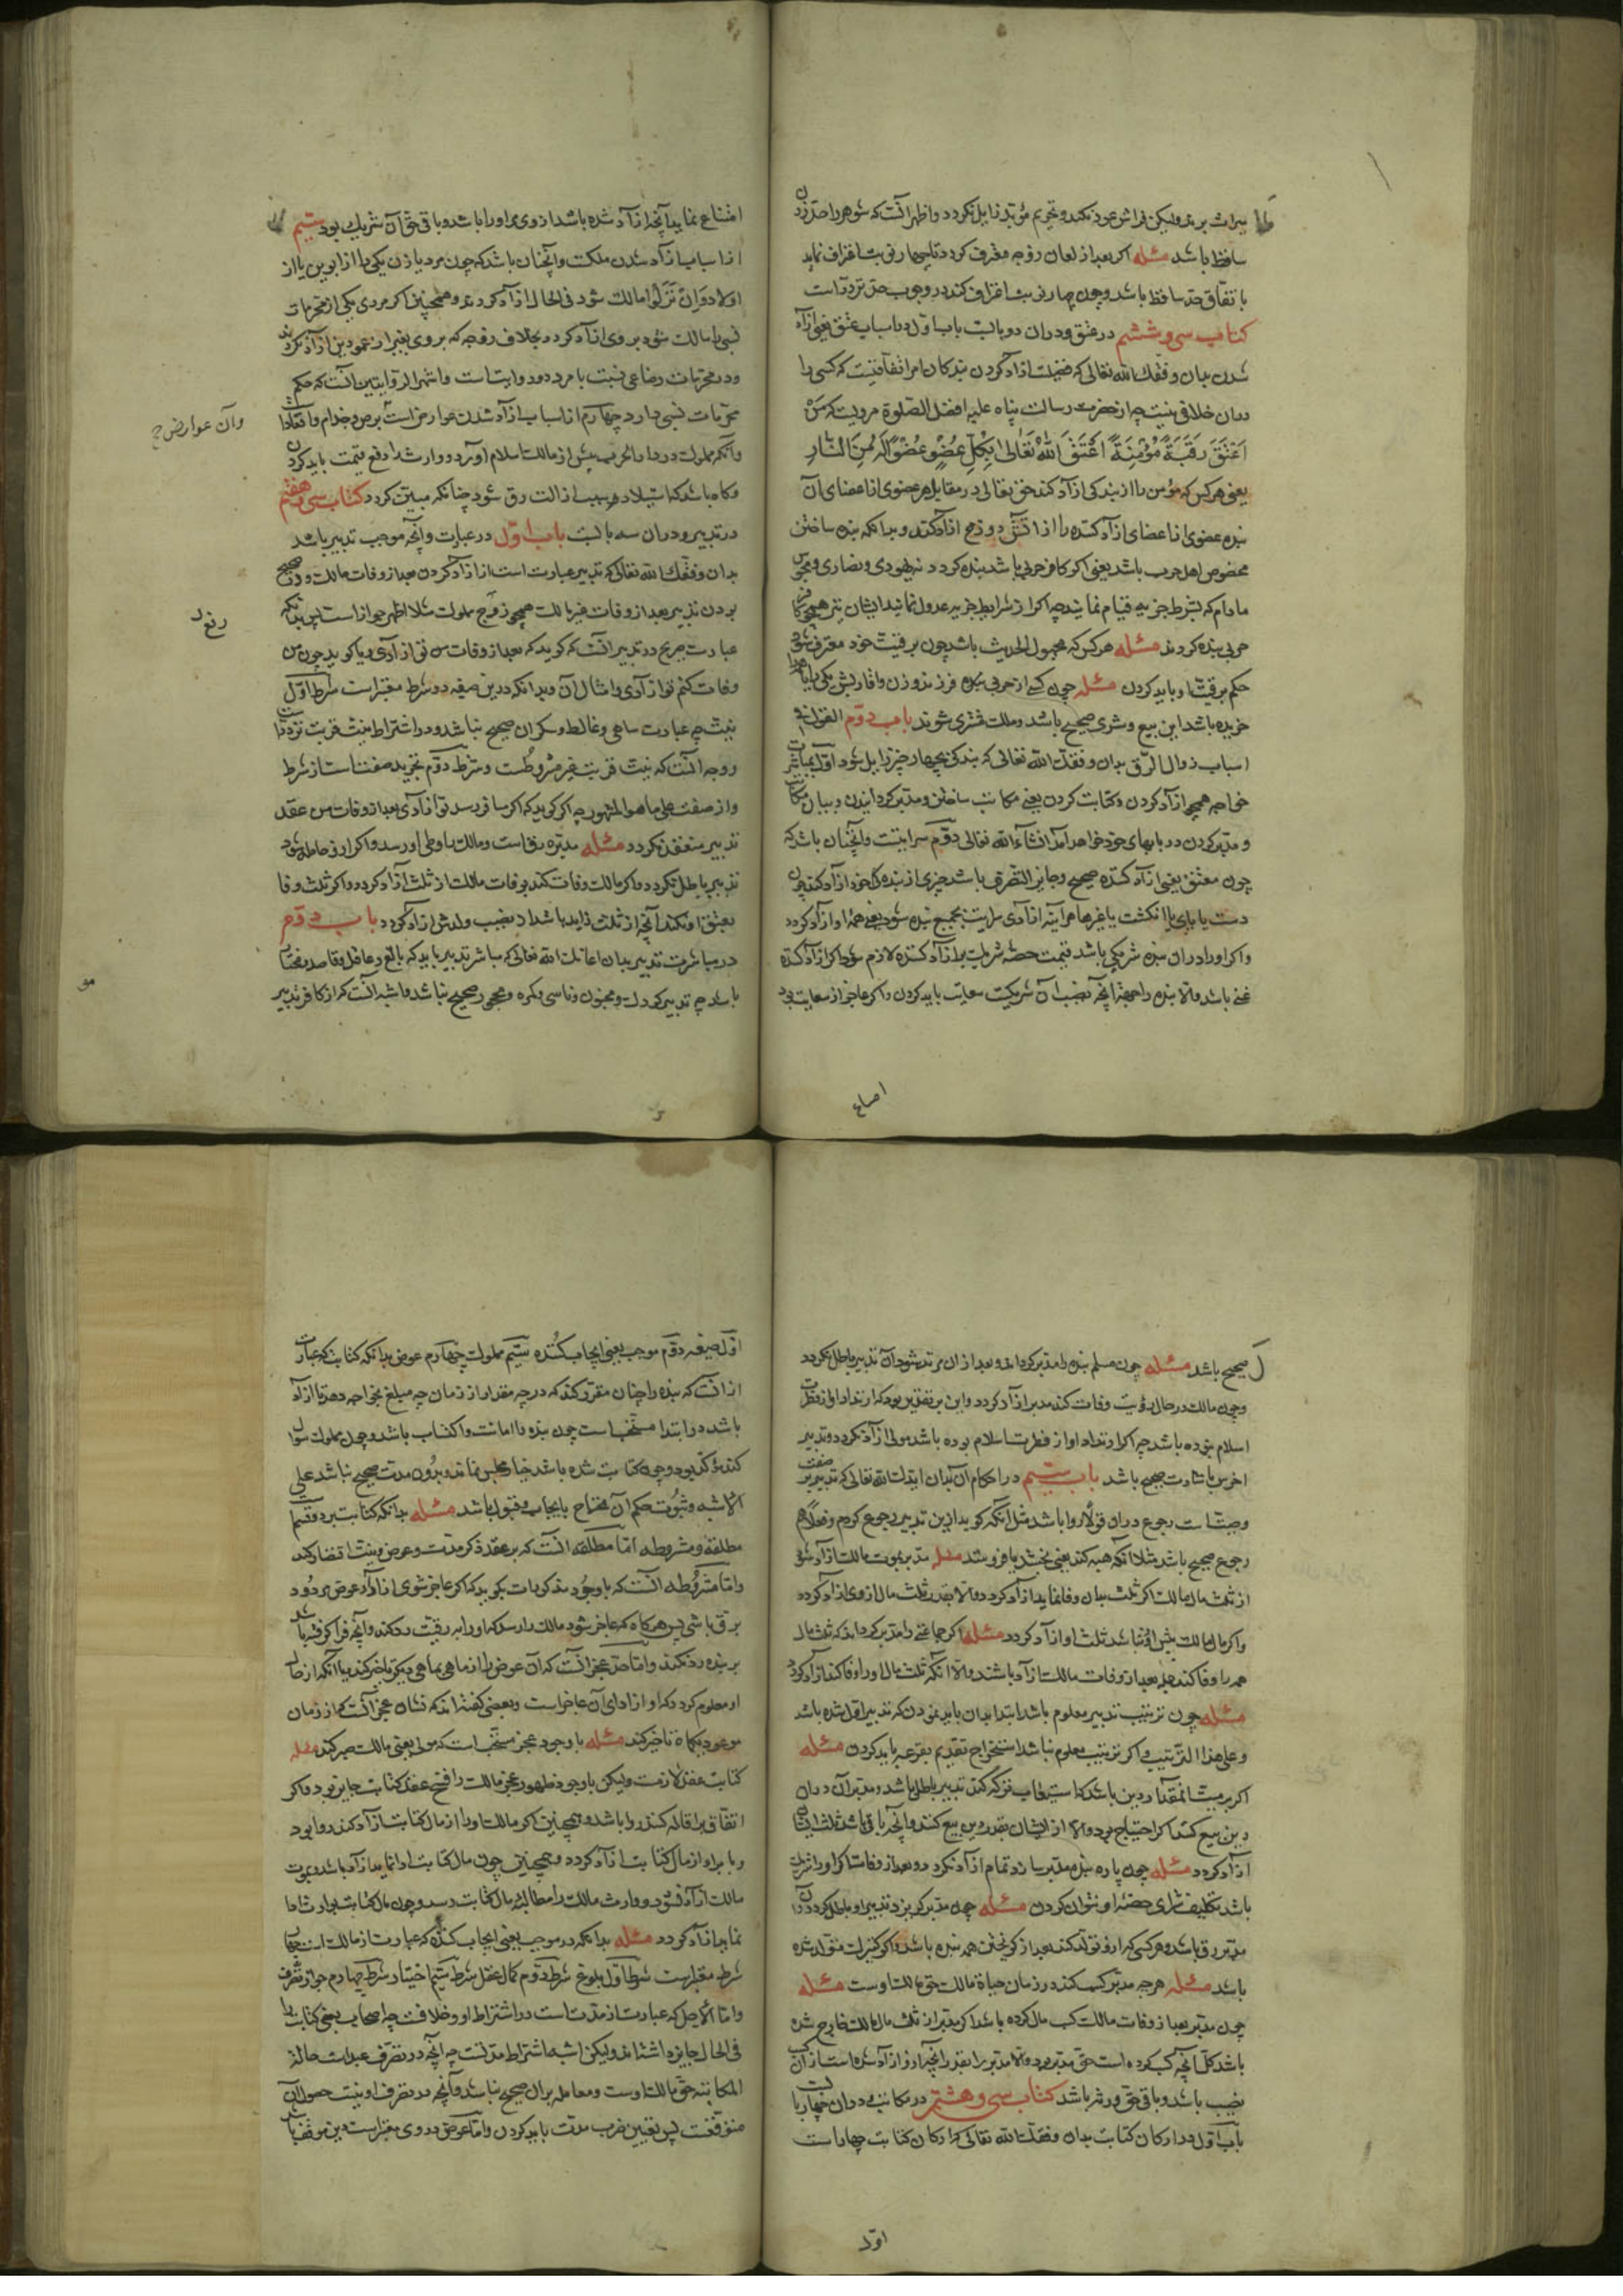 میراث برند ولیکن فراش عود نکند و تحریم مؤبد زایل نکردد و اظهر آنست که شوهر را حد زدن
ساقط باشد مسئله اکر بعد از لعان زوجه معترف کردد تا چهار نوبت اعتراف نماید
باتفاق حد ساقط باشد و چون چهار نوبت اعتراف کند در وجوب حد تردد است
کتاب سی و ششم در عتق و در آن دو بابست باب اول در اسباب عتق یعنی آزاد
شدن بدان وفقک الله تعالی که فضیلت آزاد کردن بندکان امر اتفاقیست که کسی را
در آن خلافی نیست چه از حضرت رسالت پناه علیه افضل الصلوة مرویست که مَنْ
اَعْتَقَ رَقَبَةً مُؤْمِنَةً اَعْتَقَ اللهُ تَعَالیٰ بِکُلِّ عُضْوٍ عُضْوًا لَهُ مِنَ النَّارِ
یعنی هر کس که مؤمن را از بندکی آزاد کند حق تعالی در مقابل هر عضوی از اعضای آن
بنده عضوی از اعضای آزاد کننده را از آتش دوزخ آزاد کند و بدانکه بنده ساختن
مخصوص اهل حرب باشد یعنی اکر کافر حربی باشد بنده کردد نه یهودی و نصاری و مجوس
مادام که بشرط جزیه قیام نمایند چه اکر از شرایط جزیه عدول نمایند ایشان نیز همچو کافر
حربی بنده کردند مسئله هر کس که مجهول الحریت باشد چون برقیت خود معترف شود
حکم برقیت او باید کردن مسئله چون کسی از حربی بنده فرزند و زن و اقاربش یکی را
خریده باشد این بیع و شری صحیح باشد و ملک مشتری شوند باب دوم القول فی
اسباب زوال الرق بدان وفقک الله تعالی که بندکی بچهار چیز زایل شود اول بمباشرت
خواجه همچو آزاد کردن و کتابت کردن یعنی مکاتب ساختن و مدبر کردانیدن و بیان مکاتب
و مدبر کردن در بابهای خود خواهد آمد انشاء الله تعالی دوم سرایتست و آنچنان باشد که
چون معتق یعنی آزاد کننده صحیح و جایز التصرف باشد جزی از بنده خود آزاد کند چون
دست یا پای یا انکشت یا غیرها هر آینه آزادی سرایت بجمیع بنده شود یعنی همه او آزاد کردد
و اکر او را در آن بنده شریکی باشد قیمت حصه شریک بر آزاد کننده لازم شود اکر آزاد کننده
غنی باشد والا بنده را بجهة آنچه نصیب آن شریکست سعایت باید کردن و اکر عاجز از سعایت بود
اصاع
امتناع نماید آنچه آزاد شده باشد از وی مر او را باشد و باقی حق آن شریک بود سیم
از اسباب آزاد شدن ملکست و آنچنان باشد که چون مرد یا زن یکی را از ابوین یا از
اولاد وَاِنْ نَزَلُوا مالک شود فی الحال آزاد کردند و همچنین اکر مردی یکی از محرمات
نسبی را مالک شود بر وی آزاد کردد بخلاف زوجه که بر وی بغیر از عمودین آزاد نکردند
و در محرمات رضاعی نسبت با مرد دو روایت است و اشهر الروایتین آنست که حکم
محرمات نسبی دارد چهارم از اسباب آزاد شدن عوارض است برص و جذام و اقعاد
وآن عوارض ح
و آنکه مملوک در دار الحرب پیش از مالک اسلام آورد و وارث را دفع قیمت باید کردن
و کاه باشد که استیلاد سبب ازالت رق شود چنانکه مبین کردد کتاب سی و هفتم
در تدبیر و در آن سه بابست باب اول در عبارت و آنچه موجب تدبیر باشد
بدان وفقک الله تعالی که تدبیر عبارت است از آزاد کردن بعد از وفات مالک و در صحیح
بودن تدبیر بعد از وفات غیر مالک همچو زوج مملوک مثلا اظهر جواز است پس بدانکه
عبارت صریح در تدبیر آنست که کوید که بعد از وفات من تو آزادی و یا کوید چون من
وفات کنم تو آزادی و امثال آن و بدانکه در این صیغه دو شرط معتبر است شرط اول
نیت چه عبارت ساهی و غالط و سکران صحیح نباشد و در اشتراط نیت قربت تردد است
و وجه آنست که نیت قربت غیر مشروطست و شرط دوم تجرید صفت است از شرط
و از صفت علی ما هو المشهور چه اکر کوید که اکر مسافر رسد تو آزادی بعد از وفات من عقد
تدبیر منعقد نکردد مسئله مدبره رق است و مالک را وطی او رسد و اکر از او حامله شود
تدبیر باطل نکردد و اکر مالک وفات کند بوفات مالک از ثلث آزاد کردد و اکر ثلث وفا
بعتق او نکند آنچه از ثلث زاید باشد از نصیب ولدش آزاد کردد باب دوم
در مباشرت تدبیر بدان اعانک الله تعالی که مباشر تدبیر باید که بالغ و عاقل و قاصد و مختار
باشد چه تدبیر کودک و مجنون و ناسی و مکره و محجور صحیح نباشد و اشبه آنست که از کافر تدبیر
صحیح باشد مسئله چون مسلم بنده را مدبر کرداند و بعد از آن مرتد شود آن تدبیر باطل نکردد
و چون مالک در حال ردت وفات کند مدبر آزاد کردد و این بر تقدیر بود که ارتداد او از فطرت
اسلام نبوده باشد چه اکر ارتداد او از فطرت اسلام بوده باشد مولی آزاد نکردد و تدبیر
اخرس باشارت صحیح باشد باب سیم در احکام آن بدان ایدک الله تعالی که تدبیر بر صفت
وصیت است رجوع در آن قولاً روا باشد مثل آنکه کوید از این تدبیر رجوع کردم و فعلاً هم
رجوع صحیح باشد مثلا آنکه هبه کند یعنی بخشد یا فروشد مسئله مدبر بموت مالک آزاد شود
از ثلث مال مالک اکر ثلث بدان وفا نماید آزاد کردد والا بقدر ثلث مال از وی آزاد کردد
و اکر مال مالک بیش از او نباشد ثلث او آزاد کردد مسئله اکر جماعتی را مدبر کرداند که ثلث مال
همه را وفا کند جمله بعد از وفات مالک آزاد باشند والا آنکه ثلث مال او را وفا کند آزاد کردد
مسئله چون ترتیب تدبیر معلوم باشد ابتدا بدان باید نمودن که تدبیر اول شده باشد
و علی هذا الترتیب و اکر ترتیب معلوم نباشد استخراج تقدیم بقرعه باید کردن مسئله
اکر بر میت آنمقدار دین باشد که استیعاب ترکه کند تدبیر باطل باشد و مدبر آن در آن
دین بیع کنند اکر احتیاج بود والا از ایشان بقدر دین بیع کنند و آنچه باقی باشد ثلث ایشان
آزاد کردد مسئله چون پاره بنده مدبر سازد تمام آزاد نکردد و بعد از وفات اکر او را شریک
باشد تکلیف شرای حصه او نتوان کردن مسئله چون مدبر کریزد تدبیر او باطل کردد و آن
مدبر رق باشد و هر کسی که از او تولد کند بعد از کریختن همه بنده باشد و اکر کنیزک متولد شده
باشد مسئله هر چه مدبر کسب کند در زمان حیاة مالک حق مالک اوست مسئله
چون مدبر بعد از وفات مالک کسب مال کرده باشد اکر مدبر از ثلث مال مالک خارج شده
باشد کل آنچه کسب کرده است حق مدبر بود والا مدبر را بقدر آنچه از او آزاد شده است از آن کسب
نصیب باشد و باقی حق ورثه باشد کتاب سی و هشتم در مکاتب و در آن چهار بابست
باب اول در ارکان کتابت بدان وفقک الله تعالی که ارکان کتابت چهار است
اول
اول صیغه دوم موجب یعنی ایجاب کننده سیم مملوک چهارم عوض بدانکه کتابت عبارت
از آنست که بنده را چنان مقرر کند که در چه مقدار از زمان چه مبلغ بخواجه دهد تا آزاد
باشد و در ابتدا مستحب است چون بنده را امانت و اکتساب باشد و چون مملوک سوال
کند مؤکد بود و چون کتابت شده باشد خیار مجلس نماند و بدون مدت صحیح نباشد علی
الاشبه و ثبوت حکم آن محتاج بایجاب و قبول باشد مسئله بدانکه کتابت بر دو قسمست
مطلقه و مشروطه اما مطلقه آنست که بر عقد ذکر مدت و عوض و نیت اقتصار کند
و اما مشروطه آنست که با وجود مذکورات بکوید که اکر عاجز شوی از اداء عوض مردود
برق باشی پس هرکاه که عاجز شود مالک را رسد که او را به رقیت رد کند و آنچه فرا کرفته باشد
بر بنده رد نکند و اما حد عجز آنست که آن عوض را از ماهی بماهی دیکر تاخیر کند یا آنکه از حال
او معلوم کردد که او از ادای آن عاجز است و بعضی کفته اند که نشان عجز آنست که از زمان
موعود بکاه تاخیر کند مسئله با وجود عجز مستحب است که مولی یعنی مالک صبر کند مسئله
کتابت عقد لازمست ولیکن با وجود ظهور عجز مالک را فسخ عقد کتابت جایز بود و اکر
اتفاق بر اقاله کنند روا باشد و همچنین اکر مالک او را از مال کتابت آزاد کند روا بود
و با براء از مال کتابت آزاد کردد و همچنین چون مال کتابت ادا نماید آزاد باشد و بموت
مالک آزاد نشود و وارث مالک را مطالبه مال کتابت رسد و چون مال کتابت بوارث ادا
نماید آزاد کردد مسئله بدانکه در موجب یعنی ایجاب کننده که عبارت از مالک است چهار
شرط معتبر است شرط اول بلوغ شرط دوم کمال عقل شرط سیم اختیار شرط چهارم جواز تصرف
و اما الاجل که عبارت از مدت است در اشتراط او خلافست چه اصحاب بعضی کتابت را
فی الحال جایز داشته اند ولیکن اشبه اشتراط مدتست چه آنچه در تصرف عبد است حالة
المکاتبه حق مالک اوست و معامله بر آن صحیح نباشد و آنچه در تصرف او نیست حصول آن
متوقعست پس تعیین ضرب مدت باید کردن و اما عوض در وی معتبر است دین موقت باشد